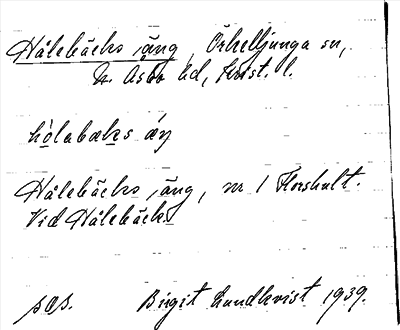 Hålebäcks äng, Örkelljunga sn,
N. Åsbo hd, Krist. l.
hòlabæks æŋ
Hålebäcks äng, nr 1 Florshult.
Vid Hålebäck.
Birgit Lundkvist 1939.